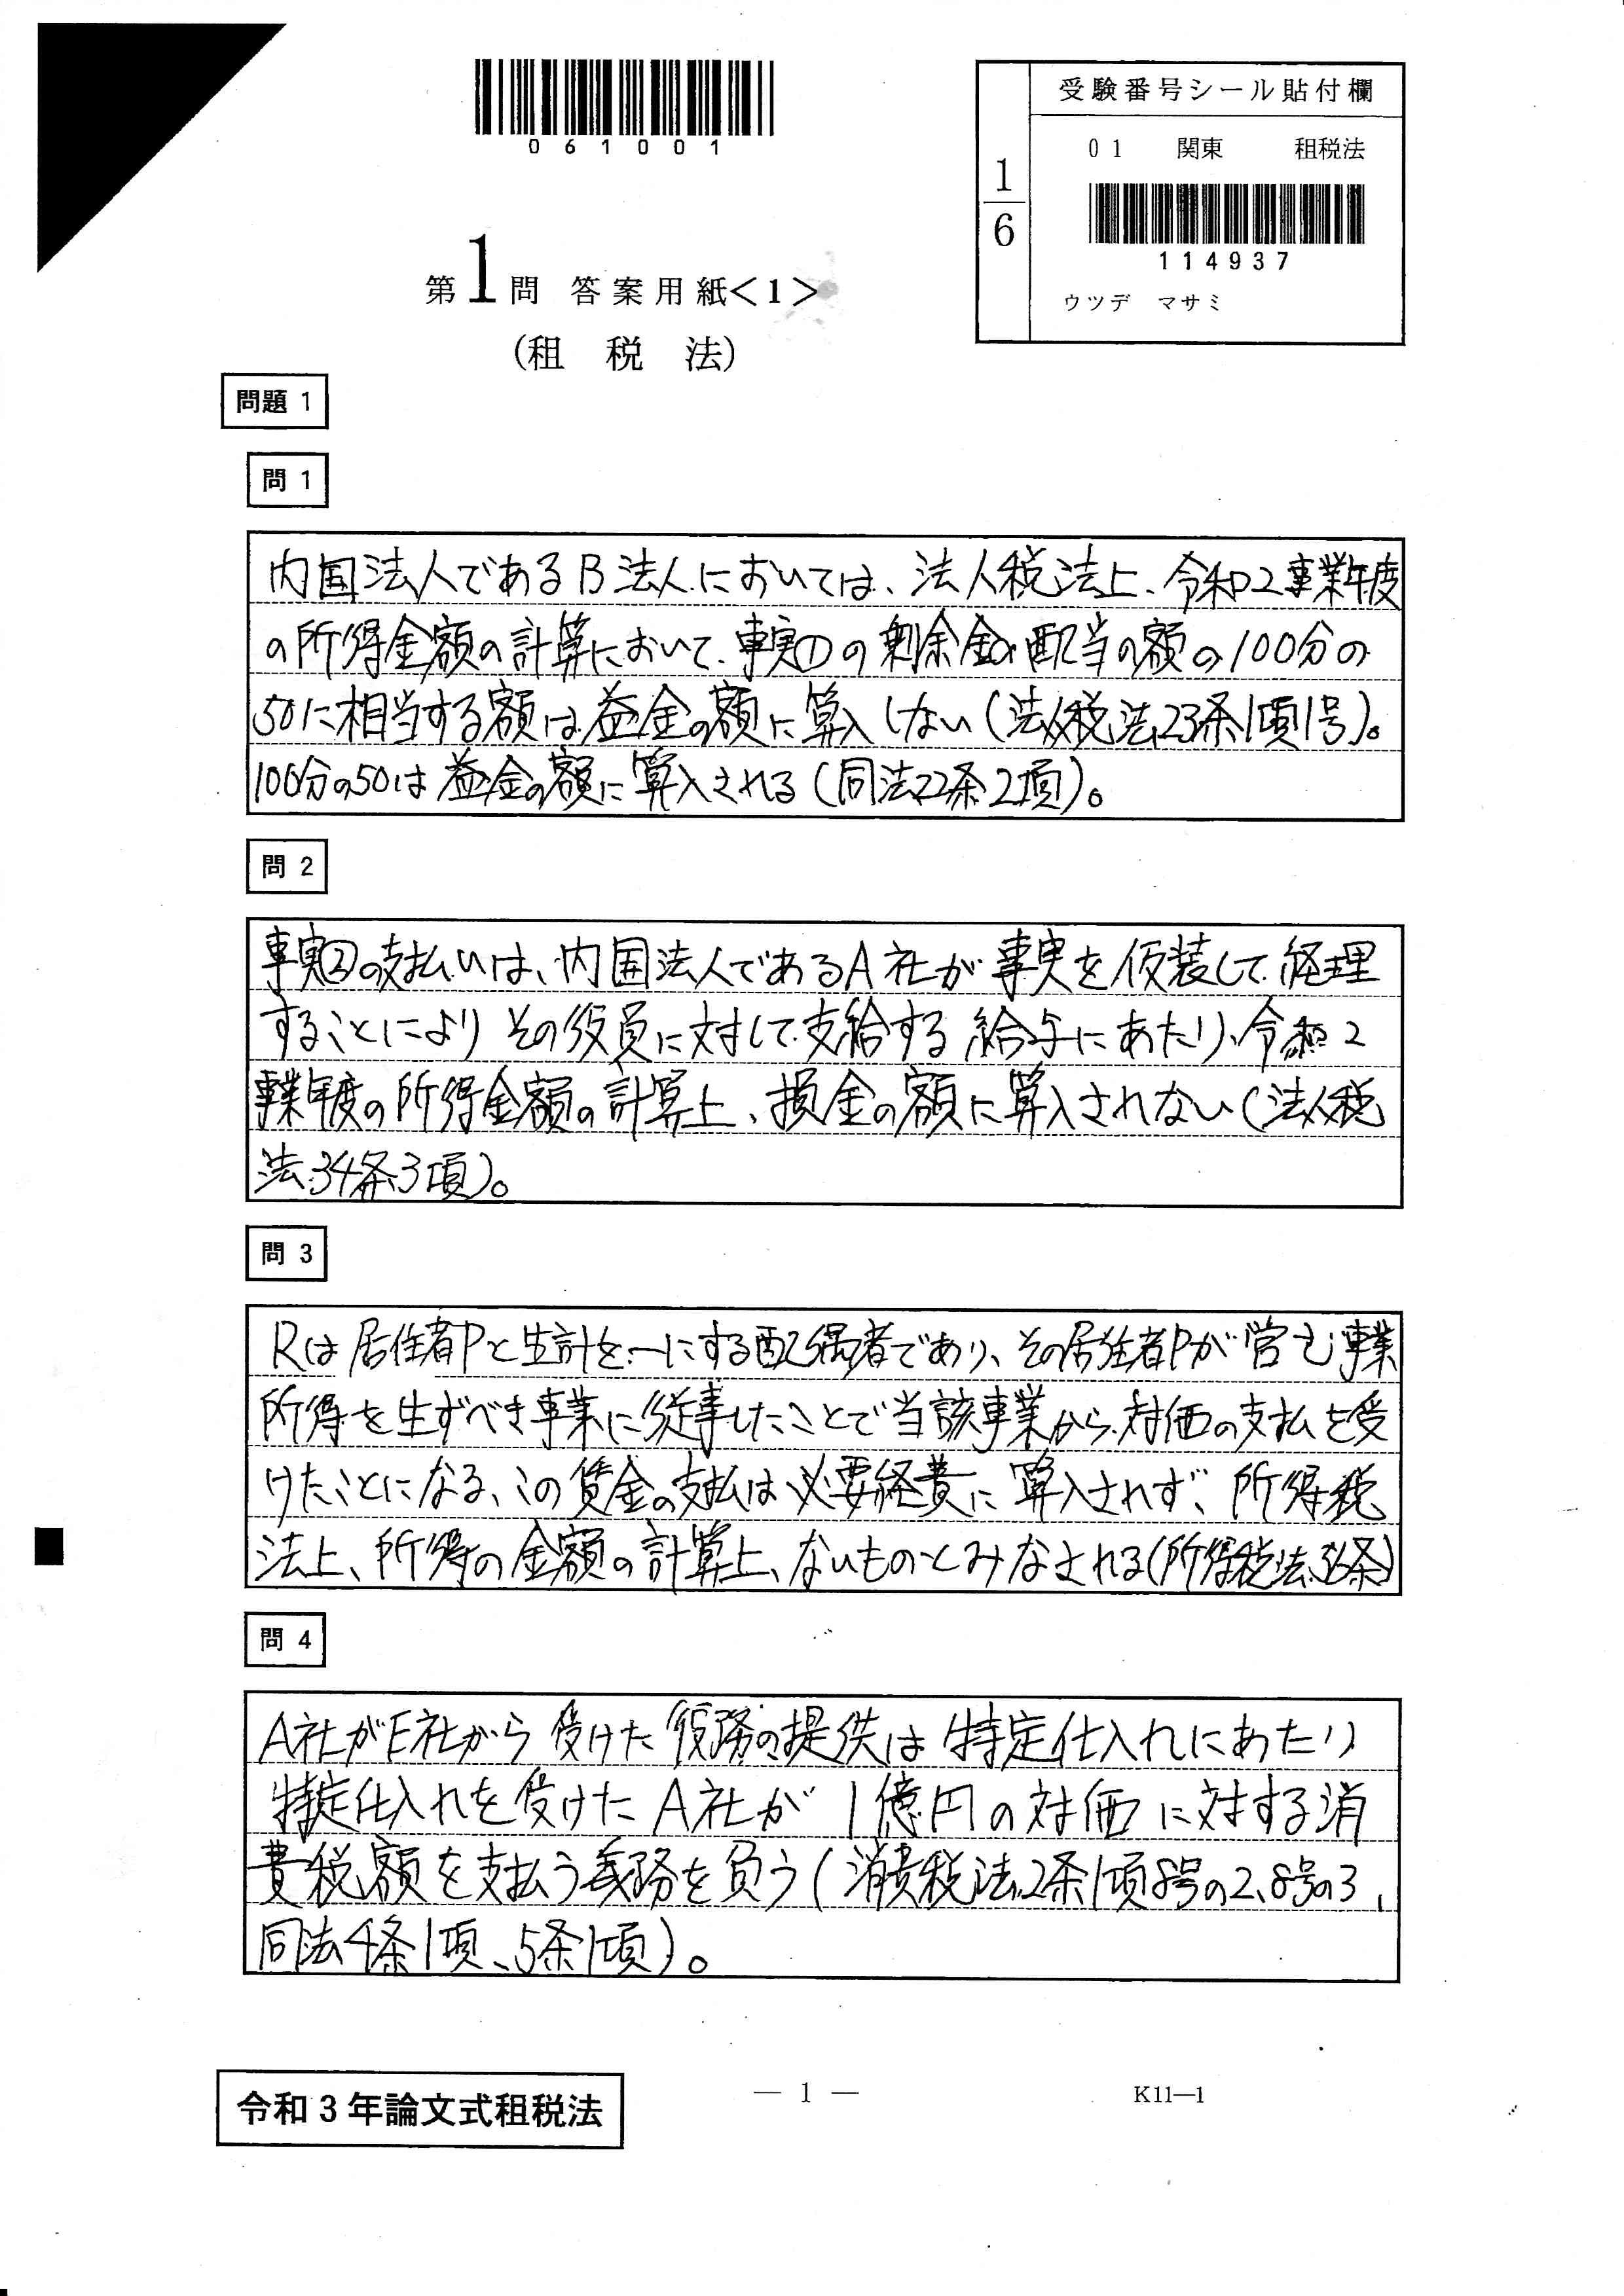 061001
受験番号シール貼付欄
1
6
01 関東 租税法
114937
ウツデ マサミ
第1問 答案用紙<1>
(租 税 法)
問題 1
問 1
内国法人であるB法人においては、法人税法上、令和2事業年度
の所得金額の計算において、事実①の剰余金の配当の額の100分の
50に相当する額は益金の額に算入しない(法人税法23条1項1号)。
100分の50は益金の額に算入される(同法22条2項)。
問 2
事実②の支払いは、内国法人であるA社が事実を仮装して経理
することによりその役員に対して支給する給与にあたり、令和2
事業年度の所得金額の計算上、損金の額に算入されない(法人税
法34条3項)。
問 3
Rは居住者Pと生計を一にする配偶者であり、その居住者Pが営む事業
所得を生ずべき事業に従事したことで当該事業から対価の支払を受
けたことになる、この賃金の支払は必要経費に算入されず、所得税
法上、所得の金額の計算上、ないものとみなされる(所得税法56条)
問 4
A社がE社から受けた役務の提供は特定仕入れにあたり
特定仕入れを受けたA社が1億円の対価に対する消
費税額を支払う義務を負う(消費税法2条1項8号の2、8号の3、
同法4条1項、5条1項)。
令和3年論文式租税法
— 1 —
K11—1